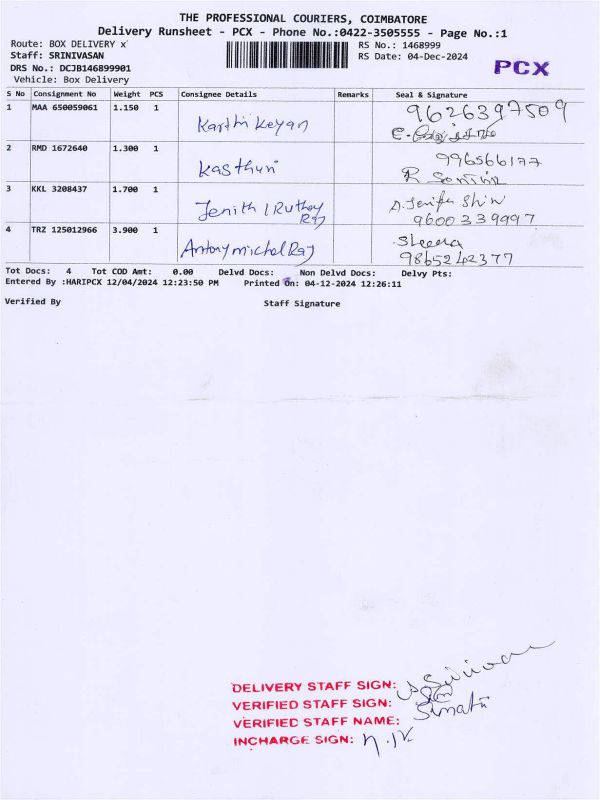 THE PROFESSIONAL COURIERS, COIMBATORE
Delivery Runsheet - PCX - Phone No.:0422-3505555 - Page No.:1
Route: BOX DELIVERY x
Staff: SRINIVASAN
DRS No.: DCJB146899901
Vehicle: Box Delivery
RS No.: 1468999
RS Date: 04-Dec-2024
PCX
S No Consignment No Weight PCS Consignee Details Remarks Seal & Signature
1 MAA 650059061 1.150 1 Karthi Keyan 9626397509
2 RMD 1672640 1.300 1 Kasthuri 996566177
R
3 KKL 3208437 1.700 1 Jenith I Ruthoy Raj D. Jenifa Shin
9600339997
4 TRZ 125012966 3.900 1 Antony michel Raj Sheela
9865242377
Tot Docs: 4 Tot COD Amt: 0.00 Delvd Docs: Non Delvd Docs: Delvy Pts:
Entered By :HARIPCX 12/04/2024 12:23:50 PM Printed On: 04-12-2024 12:26:11
Verified By Staff Signature
DELIVERY STAFF SIGN:
VERIFIED STAFF SIGN:
VERIFIED STAFF NAME:
INCHARGE SIGN: